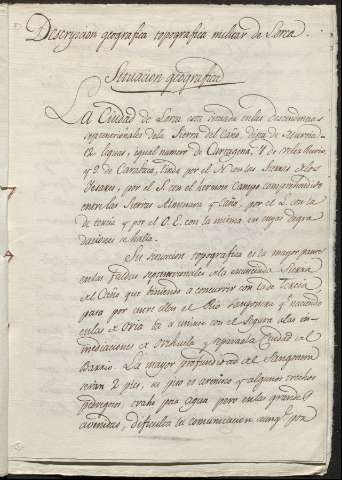 Descripcion geografica topografica militar de Lorca.
Situacion geografica
La Ciudad de Lorca esta situada en las descendencias
septentrionales dela Sierra del Caño, dista de Murcia
12 leguas, igual numero de Cartagena, 4 de
y 9 de Caravaca, linda por el N. con las Sierras de los
por el S. con el hermoso Campo comprehendido
entre las Sierras Almenara y Caño, por el L. con la
de tercia y por el O. E. con la misma en cuyas degra
daciones se halla.
Su situacion topografica es la mayor parte
en las faldas septentrionales de la enunciada Sierra
del Caño que viniendo a concurrir con la de tercia
pasa por entre ellas el Rio Sangonera qe. naciendo
en las de Oria ba a unirse con el Segura a las in-
mediaciones de Orihuela y separa la Ciudad del
Barrio. La mayor profundidad del Sangonera
serán 2 pies, su piso es arenoso y algunos trechos
pedregoso, trahe poca agua pero en las grandes
avenidas, dificulta la comunicacion aunqe. por